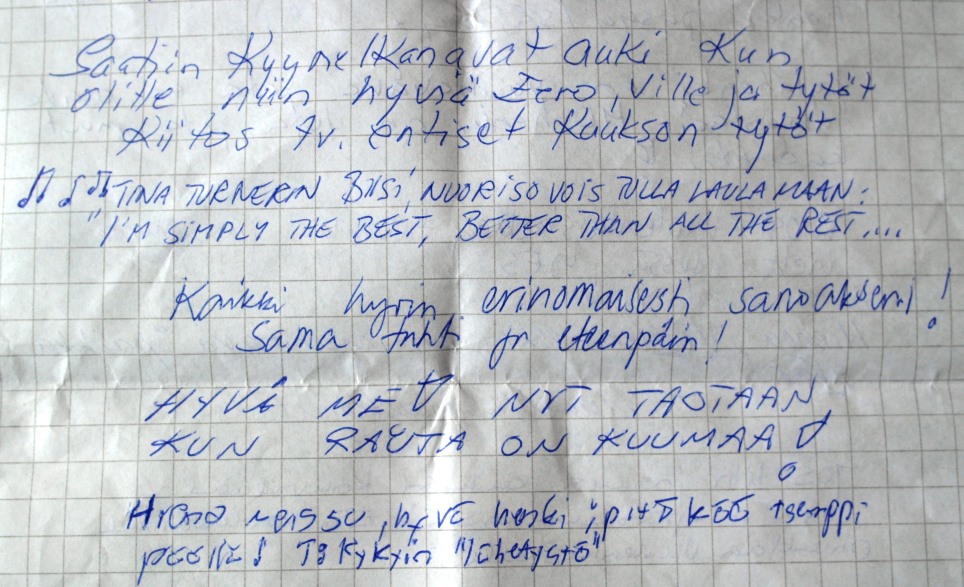 Saatiin Kyynelkanavat auki Kun
olitte niin hyviä Eero, Ville ja tytöt
Kiitos Tv. entiset Kaukson tytöt
TINA TURNERIN BIISI, NUORISO VOIS TULLA LAULAMAAN:
"I'M SIMPLY THE BEST, BETTER THAN ALL THE REST....
Kaikki hyvin erinomaisesti sanoakseni!
Sama tahti jr eteenpäin!
HYVÄ ME! NYT TAOTAAN
KUN RAUTA ON KUUMAA!
Hieno reissu, hyvä henki; pitäkää tsemppi
päällä! T: Kykyin "lähetystö"